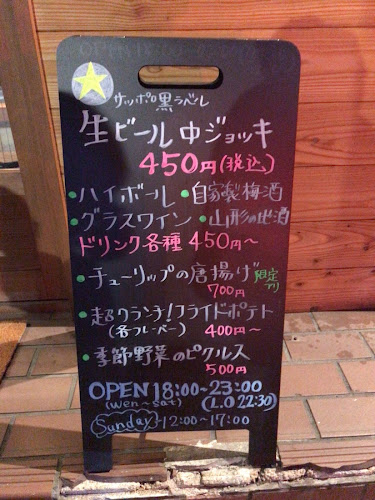 サッポロ黒ラベル
生ビール中ジョッキ
450円(税込)
・ハイボール ・自家製梅酒
・グラスワイン ・山形の地酒
ドリンク各種 450円〜
・チューリップの唐揚げ 限定アリ
700円
・超クランチ!フライドポテト
(各フレーバー) 400円〜
・季節野菜のピクルス
500円
OPEN 18:00〜23:00
(wen〜sat) (L.O 22:30)
Sunday 12:00〜17:00